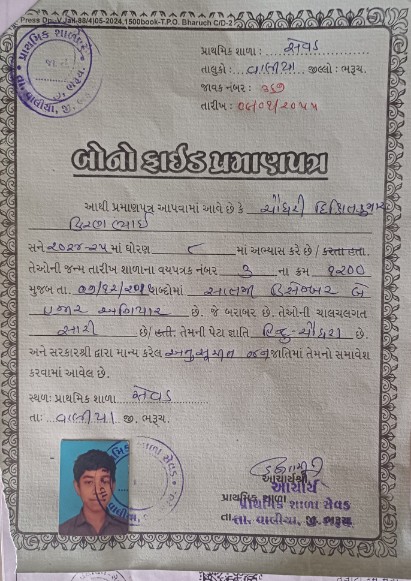 Press Dp. V.JAH-88/4)05-2024,1500book-T.P.O. Bharuch C/D-2
પ્રાથમિક શાળા : સેવડ
તાલુકો : વાલીયા જીલ્લો : ભરૂચ.
જાવક નંબર : ૩૬૭
તારીખ :
બોનોફાઈડ પ્રમાણપત્ર
આથી પ્રમાણપત્ર આપવામાં આવે છે કે ચૌધરી
કિરણભાઈ
સને ૨૦૨૪-૨૫ માં ધોરણ ૮ માં અભ્યાસ કરે છે / કરતા હતા.
તેઓની જન્મ તારીખ શાળાના વયપત્રક નંબર ૩ ના ક્રમ ૧૨૦૦
મુજબ તા. ૦૭/૧૨/૨૦૧૧ શબ્દોમાં સાતમી ડિસેમ્બર બે
હજાર અગિયાર છે. જે બરાબર છે. તેઓની ચાલચલગત
સારી છે/ હતી. તેમની પેટા જ્ઞાતિ હિન્દુ-ચૌધરી છે.
અને સરકારશ્રી દ્વારા માન્ય કરેલ અનુસૂચિત જનજાતિમાં તેમનો સમાવેશ
કરવામાં આવેલ છે.
સ્થળ: પ્રાથમિક શાળા સેવડ
તા: વાલીયા જી. ભરૂચ.
આચાર્યશ્રી
આચાર્ય
પ્રાથમિક શાળા
પ્રાથમિક શાળા સેવડ
તા. વાલીયા, જી. ભરૂચ